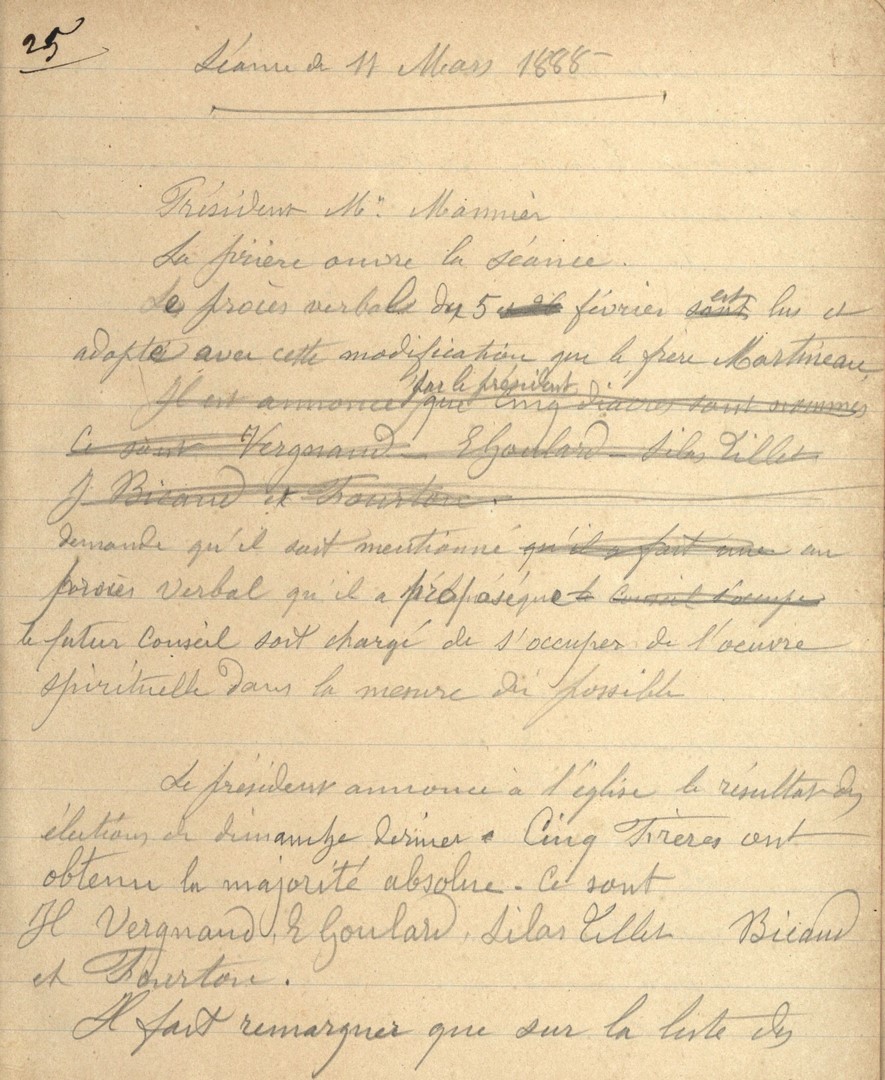 25
Séance du 11 Mars 1888
Président Mr. Monnier
La prière ouvre la séance.
Le procès verbal du 5 et 26 février sont est lus et
adopté avec cette modification que le frère Martineau
par le président
Il est annoncé que Cinq diacres sont nommés
Ce sont Vergnaud - E Goulard - Silas Tillet
J Bicaud et Fourton.
demande qu'il soit mentionné qu'il a fait une au
procès verbal qu'il a proposé que le Conseil s'occupe
le futur Conseil soit chargé de s'occuper de l'oeuvre
spirituelle dans la mesure du possible
Le président annonce à l'église le résultat des
élections de dimanche dernier. Cinq Frères ont
obtenu la majorité absolue. Ce sont
H Vergnaud, E Goulard, Silas Tillet Bicaud
et Fourton.
Il fait remarquer que sur la liste des